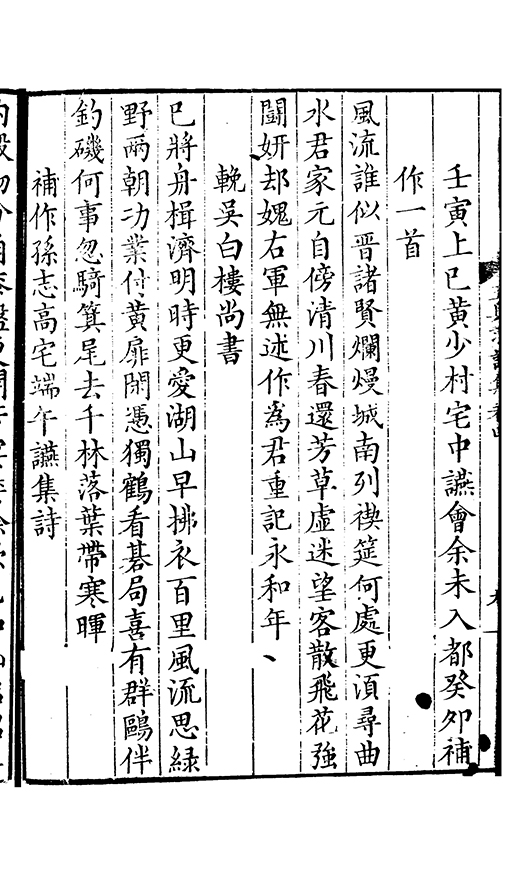 壬寅上巳黄少村宅中讌會余未入都癸夘補
作一首
風流誰似晋諸賢爛熳城南列禊筵何處更湏尋曲
水君家元自傍清川春還芳草虚迷望客散飛花強
鬪妍却媿右軍無述作為君重記永和年
輓吴白樓尚書
已將舟楫濟明時更愛湖山早拂衣百里風流思緑
野兩朝功業付黄扉閑憑獨鶴看碁局喜有群鷗伴
釣磯何事忽騎箕尾去千林落葉帶寒暉
補作孫志高宅端午讌集詩